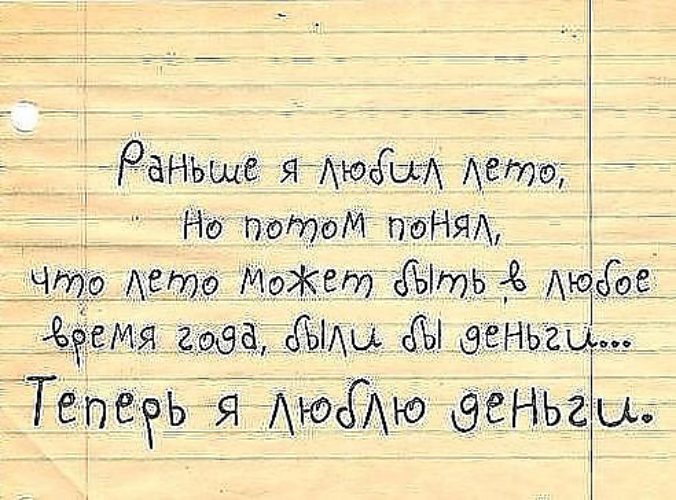 Раньше я любил лето,
Но потом понял,
что лето может быть в любое
время года, были бы деньги...
Теперь я люблю деньги.